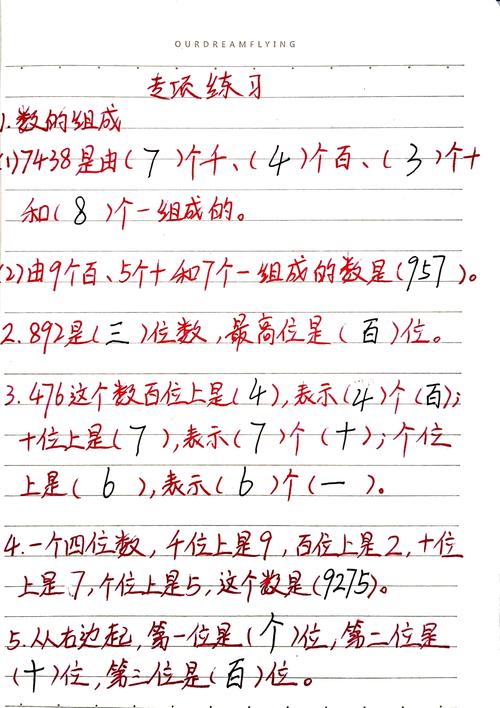 OURDREAMFLYING
专项练习
1.数的组成
(1)7438是由(7)个千、(4)个百、(3)个十
和(8)个一组成的。
(2)由9个百、5个十和7个一组成的数是(957)。
2.892是(三)位数,最高位是(百)位。
3.476这个数百位上是(4),表示(4)个(百);
十位上是(7),表示(7)个(十);个位
上是(6),表示(6)个(一)。
4.一个四位数,千位上是9,百位上是2,十位
上是7,个位上是5,这个数是(9275)。
5.从右边起,第一位是(个)位,第二位是
(十)位,第三位是(百)位。